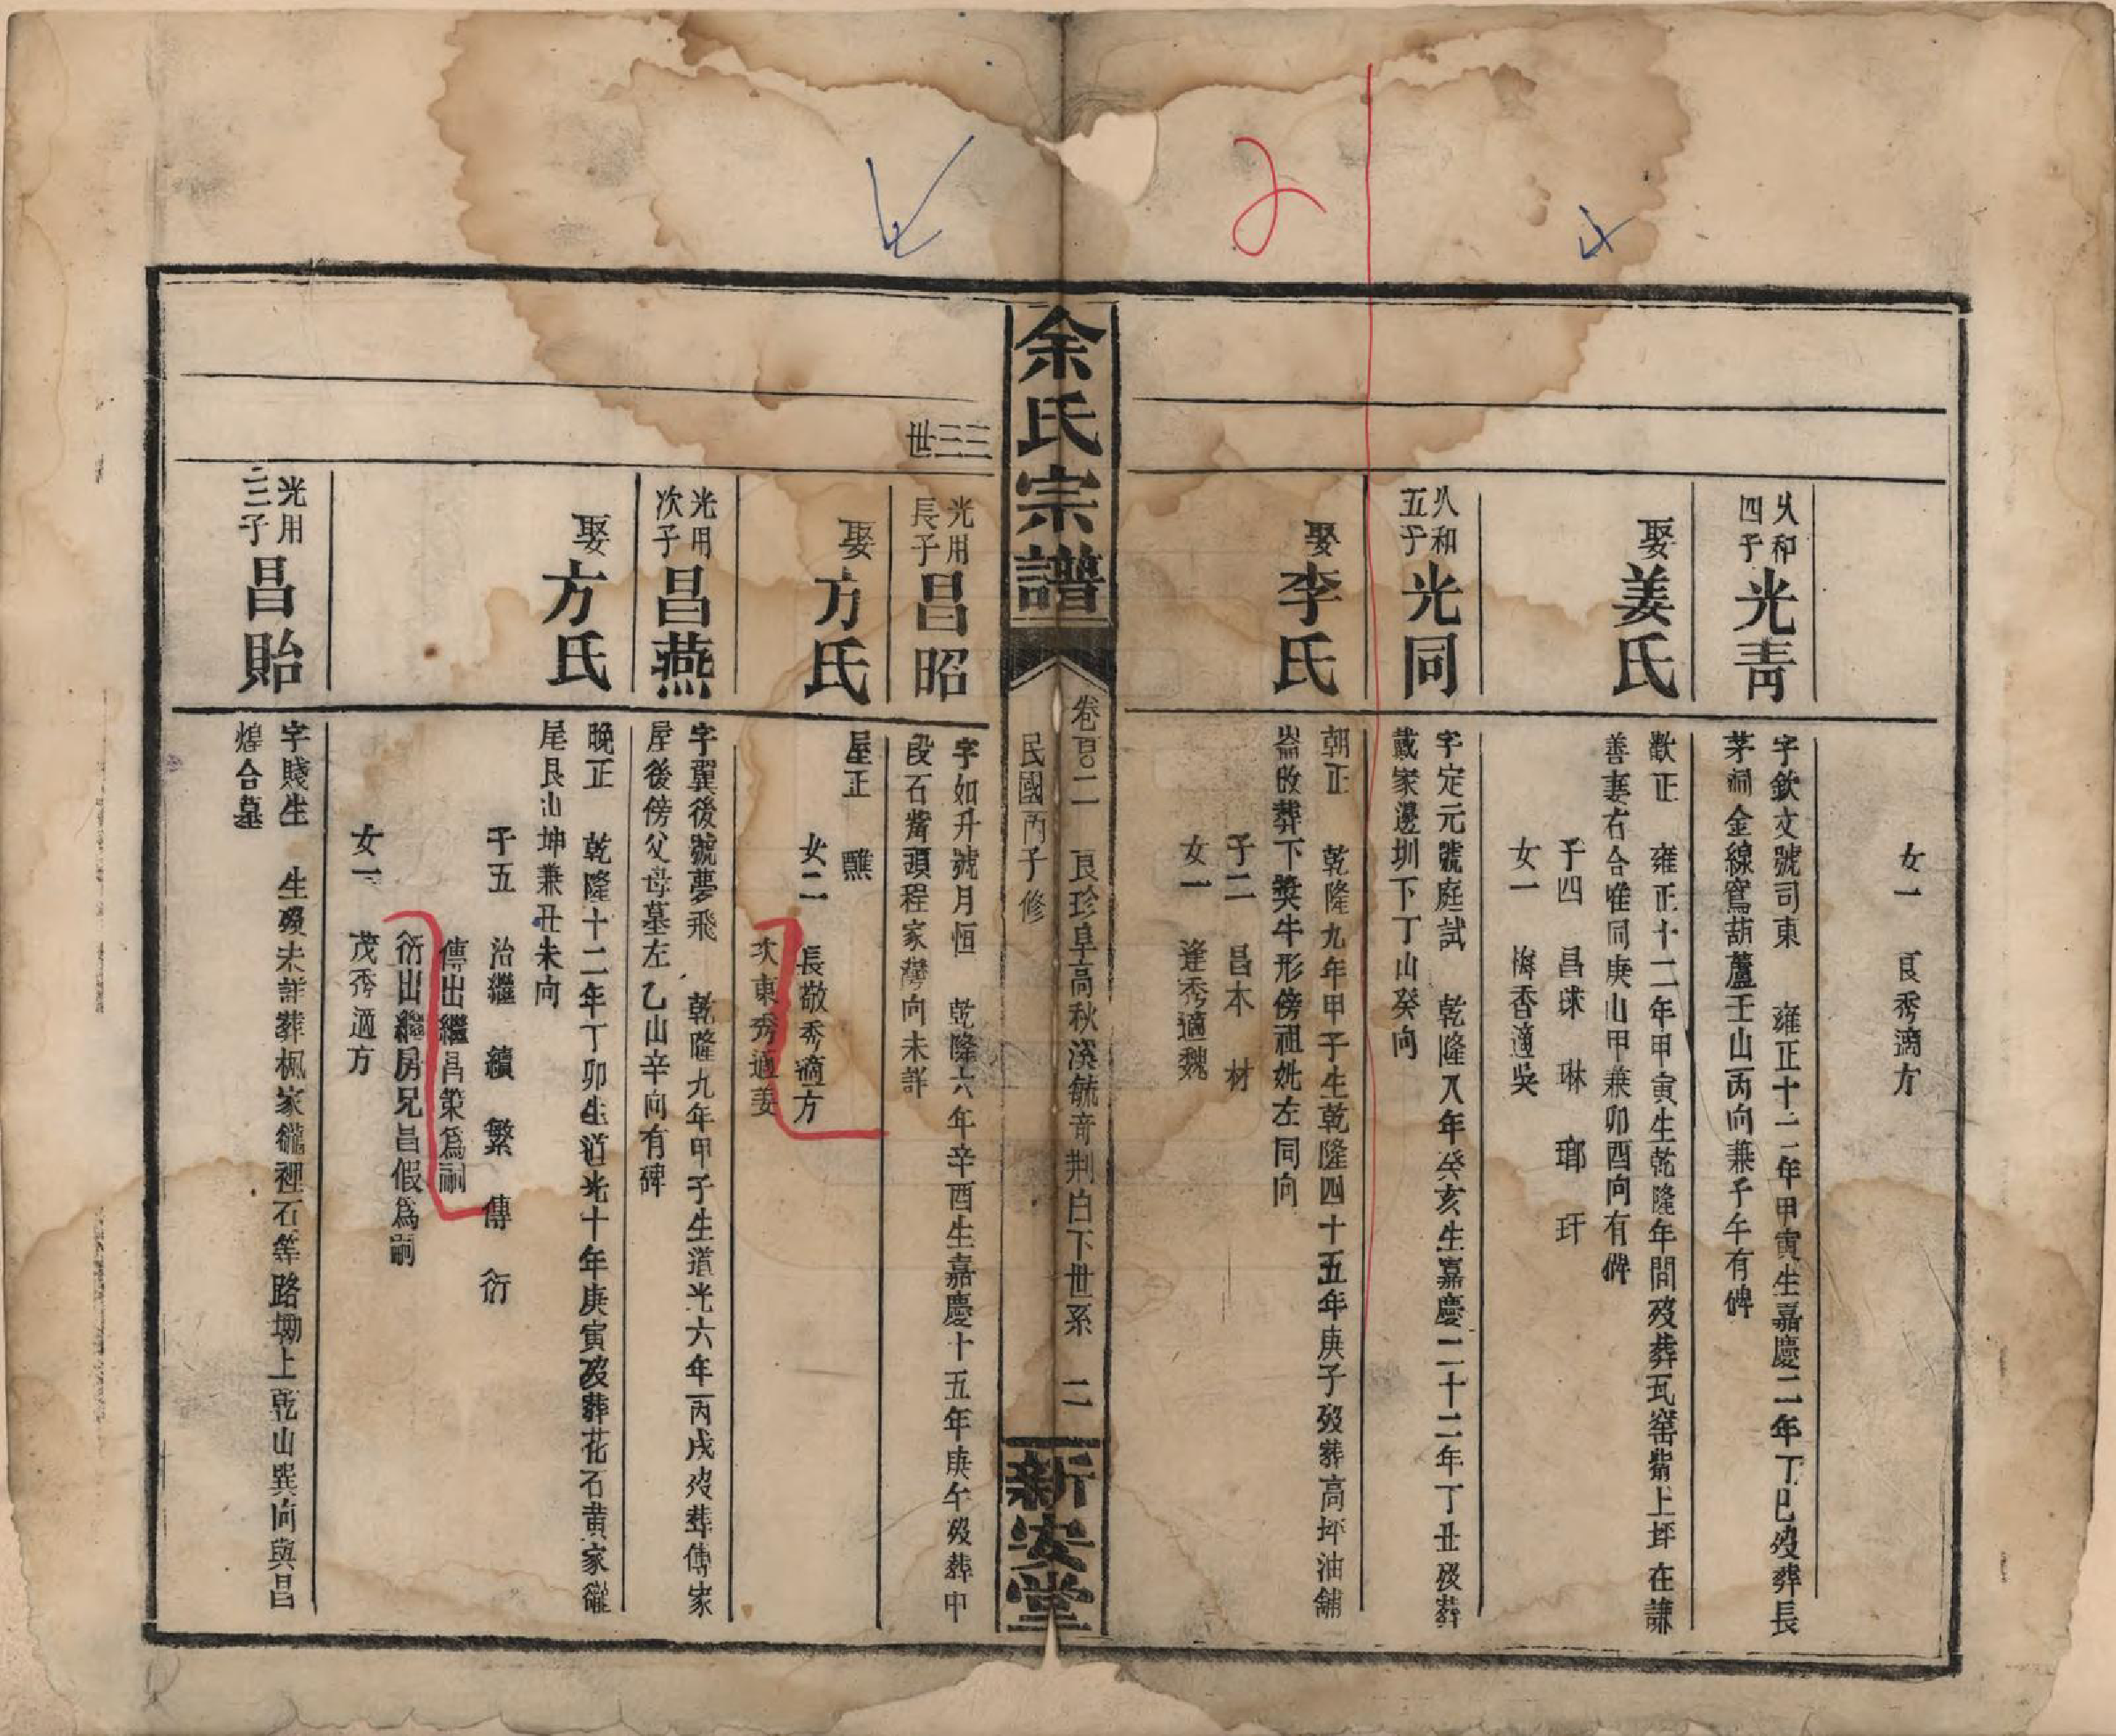 女一 良秀適方
久和
四子
光青
字欽文號司東 雍正十二年甲寅生嘉慶二年丁巳歿葬長
茅洞金線鴛葫蘆壬山丙向兼子午有碑
娶姜氏
歡正 雍正十二年甲寅生乾隆年間歿葬瓦窑嘴上坪在謙
善妻右合唯同庚山甲兼卯酉向有碑
子四 昌球 琳 瑯 玕
女一 梅香適吳
久和
五子
光同
字定元號庭試 乾隆八年癸亥生嘉慶二十二年丁丑歿葬
戴家邊圳下丁山癸向
娶李氏
朝正 乾隆九年甲子生乾隆四十五年庚子歿葬高坪油舖
崙改葬下獎牛形傍祖妣左同向
子二 昌木 材
女一 逢秀適魏
余氏宗譜
卷百〇二 良珍阜高秋溪毓奇荆白下世系 二
民國丙子修
新安堂
三三世
光用
長子
昌昭
字如升號月恒 乾隆六年辛酉生嘉慶十五年庚午歿葬中
段石嘴頭程家灣向未詳
娶方氏
屋正 醮
女二 長敬秀適方
次東秀適姜
光用
次子
昌燕
字翼後號夢飛 乾隆九年甲子生道光六年丙戌歿葬傅家
屋後傍父母墓左乙山辛向有碑
娶方氏
晚正 乾隆十二年丁卯生道光十年庚寅歿葬花石黃家巃
尾艮山坤兼丑未向
子五 治繼 續 繁 傳 衍
傳出繼昌策為嗣
衍出繼房兄昌假為嗣
女一 茂秀適方
光用
三子
昌貽
字賤生 生歿未詳葬楓家巃裡石等路墈上乾山巽向與昌
煌合墓